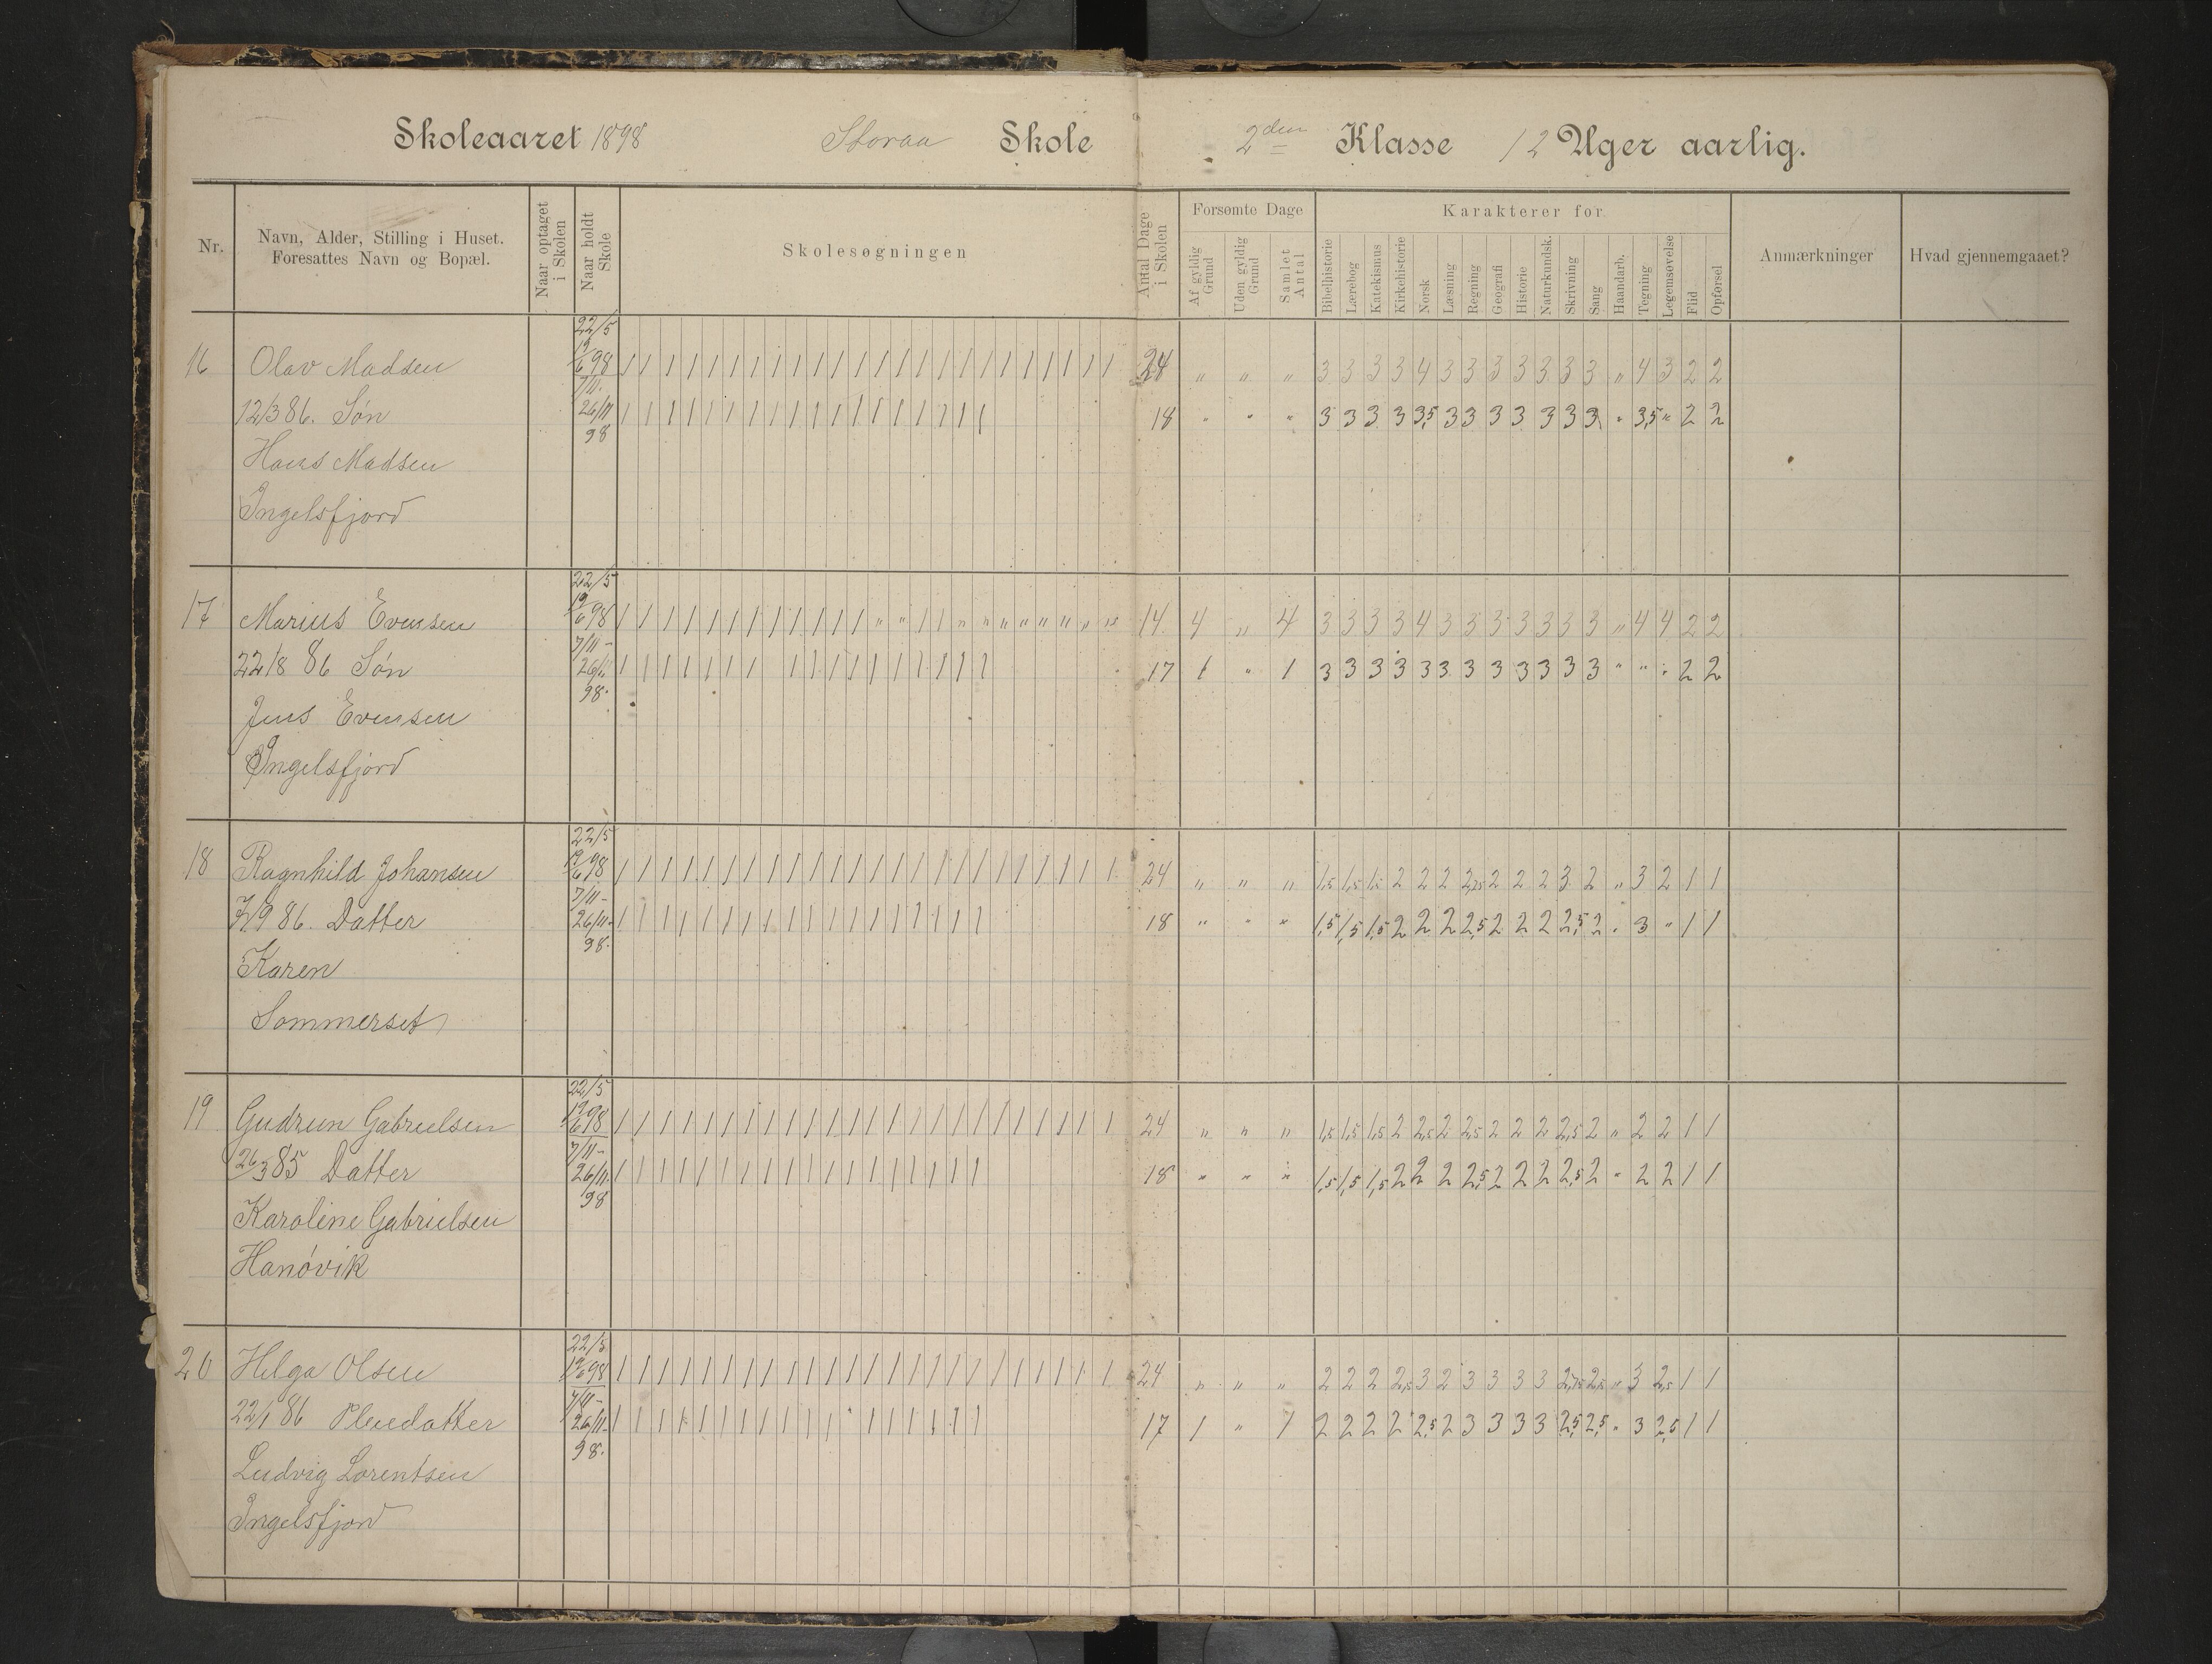 Skoleaaret 1898 Storaa Skole 2den Klasse 12 Uger aarlig.
Nr. Navn, Alder, Stilling i Huset. Foresattes Navn og Bopæl. Naar optaget i Skolen Naar holdt Skole Skolesøgningen Antal Dage i Skolen Forsømte Dage Af gyldig Grund Uden gyldig Grund Samlet Antal Karakterer for Bibelhistorie Lærebog Katekismus Kirkehistorie Norsk Læsning Regning Geografi Historie Naturkundsk. Skrivning Sang Haandarb. Tegning Legemsøvelse Flid Opførsel Anmærkninger Hvad gjennemgaaet?
22/5
16 Olav Madsen 19/6 98 | | | | | | | | | | | | | | | | | | | | | | | | 24 " " " 3 3 3 3 4 3 3 3 3 3 3 3 " 4 3 2 2
7/11-
12/3 86. Søn 26/11 | | | | | | | | | | | | | | | | | | 18 " " " 3 3 3 3 3,5 3 3 3 3 3 3 3 " 3,5 " 2 2
98
Hans Madsen
Ingelsfjord
22/5
17 Marius Evensen 19/6 98 | | | | | | | | | | | | " " | | " " " " " " " " 14 4 " 4 3 3 3 3 4 3 3 3 3 3 3 3 " 4 4 2 2
7/11-
22/8 86 Søn 26/11 | | | | | | | | | | | | | | | | | 17 1 " 1 3 3 3 3 3 3 3 3 3 3 3 3 " " " 2 2
98.
Jens Evensen
Ingelsfjord
22/5
18 Ragnhild Johansen 19/6 98 | | | | | | | | | | | | | | | | | | | | | | | | 24 " " " 1,5 1,5 1,5 2 2 2 2,25 2 2 2 3 2 " 3 2 1 1
7/11-
7/9 86. Datter 26/11- | | | | | | | | | | | | | | | | | | 18 " " " 1,5 1,5 1,5 2 2 2 2,5 2 2 2 2,5 2 " 3 " 1 1
98.
Karen
Sommerset
22/5
19 Gudrun Gabrielsen 19/6 98 | | | | | | | | | | | | | | | | | | | | | | | | 24 " " " 1,5 1,5 1,5 2 2,5 2 2,5 2 2 2 2,5 2 " 2 2 1 1
7/11-
26/3 85 Datter 26/11. | | | | | | | | | | | | | | | | | | 18 " " " 1,5 1,5 1,5 2 2 2 2,5 2 2 2 2,5 2 " 2 2 1 1
98
Karoline Gabrielsen
Hanøvik
22/5
20 Helga Olsen 19/6 98 | | | | | | | | | | | | | | | | | | | | | | | | 24 " " " 2 2 2 2,5 3 2 3 3 3 3 2,75 2,5 " 3 2,5 1 1
7/11-
22/1 86 Pleiedatter 26/11- | | | | | | | | | | | | | | | | | 17 1 " 1 2 2 2 2 2,5 2 3 3 3 3 2,5 2,5 " 3 2,5 1 1
98.
Ludvig Lorentsen
Ingelsfjord